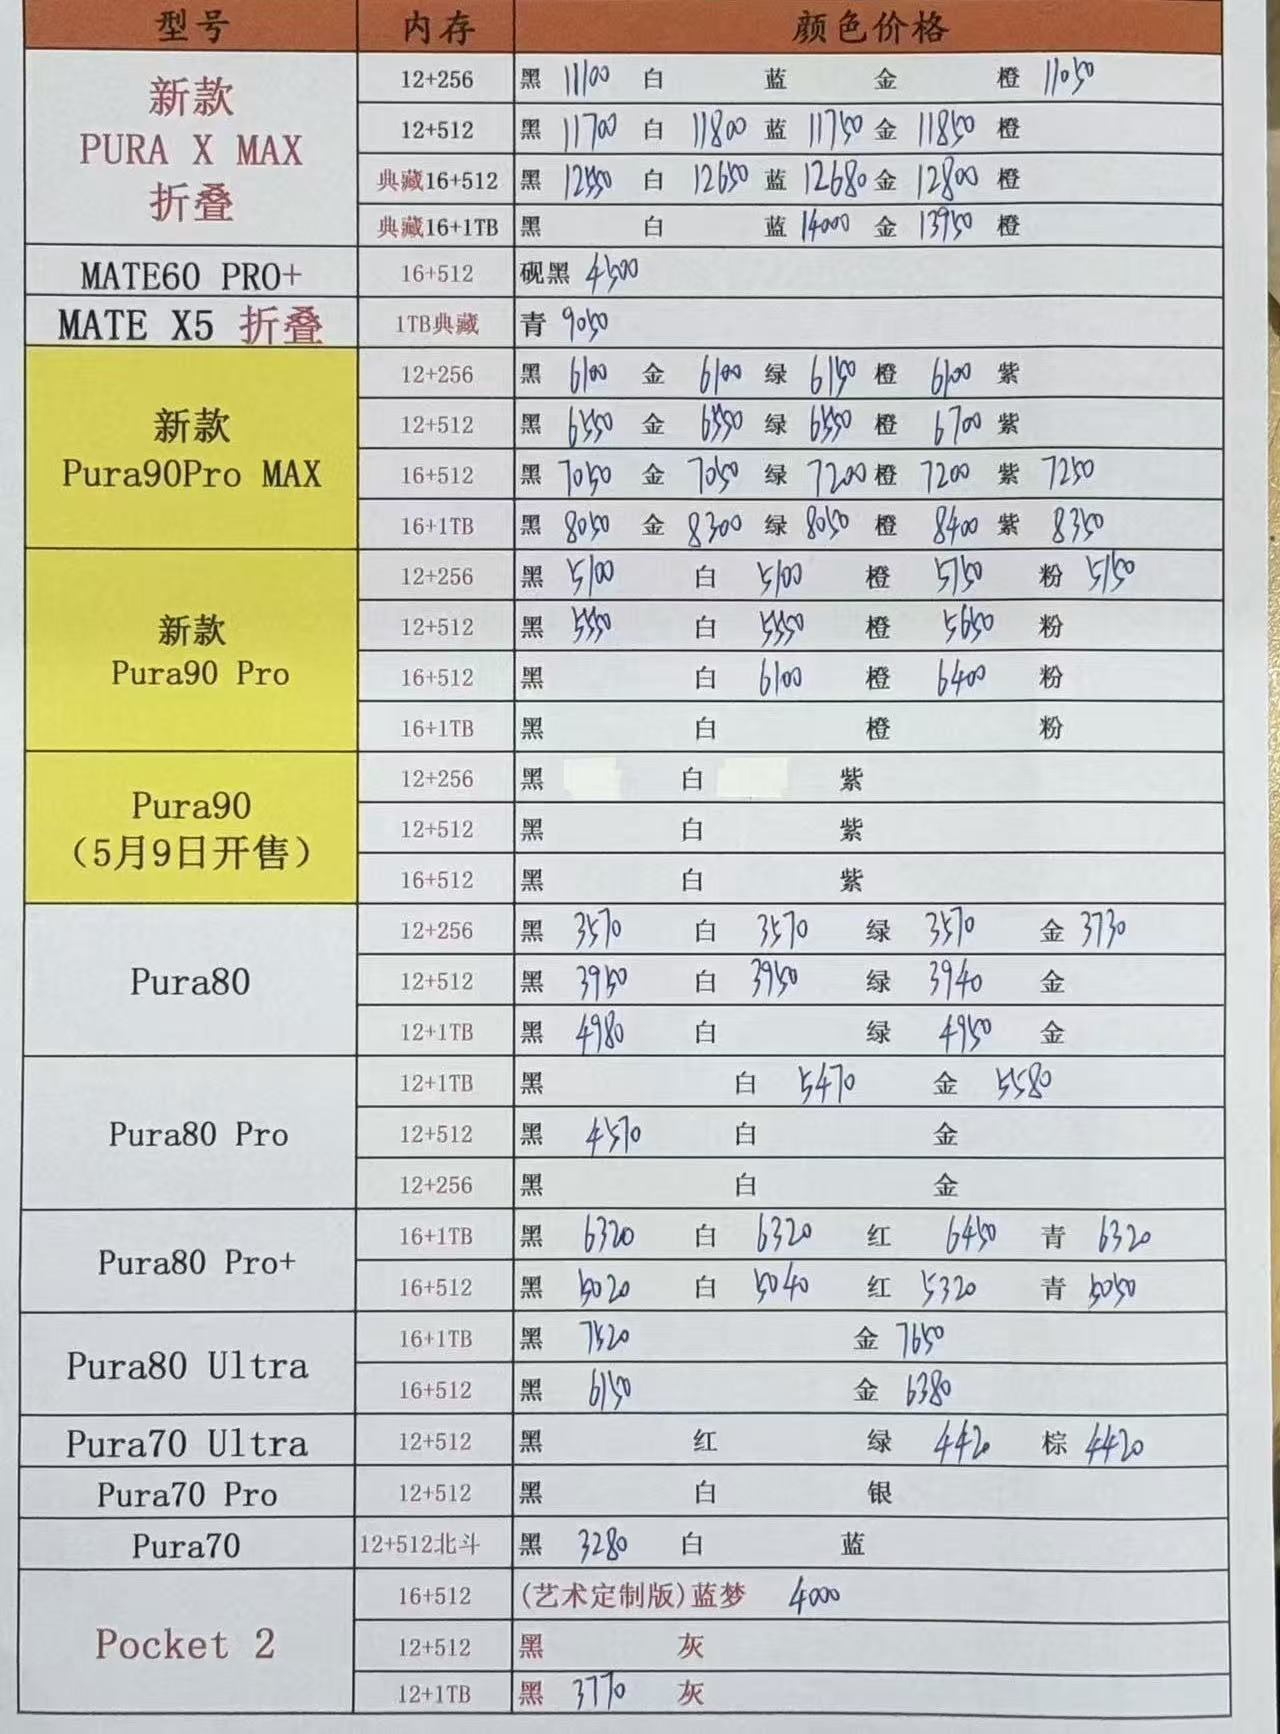 型号 内存 颜色价格
新款 PURA X MAX 折叠
12+256 黑 11100 白 蓝 金 橙 11050
12+512 黑 11700 白 11800 蓝 11750 金 11850 橙
典藏16+512 黑 12550 白 12650 蓝 12680 金 12800 橙
典藏16+1TB 黑 白 蓝 14000 金 13950 橙
MATE60 PRO+ 16+512 砚黑 4500
MATE X5 折叠 1TB典藏 青 9050
新款 Pura90Pro MAX
12+256 黑 6100 金 6100 绿 6150 橙 6100 紫
12+512 黑 6550 金 6550 绿 6550 橙 6700 紫
16+512 黑 7050 金 7050 绿 7200 橙 7200 紫 7250
16+1TB 黑 8050 金 8300 绿 8050 橙 8400 紫 8350
新款 Pura90 Pro
12+256 黑 5100 白 5100 橙 5150 粉 5150
12+512 黑 5550 白 5550 橙 5650 粉
16+512 黑 白 6100 橙 6400 粉
16+1TB 黑 白 橙 粉
Pura90 （5月9日开售）
12+256 黑 白 紫
12+512 黑 白 紫
16+512 黑 白 紫
Pura80
12+256 黑 3570 白 3570 绿 3570 金 3730
12+512 黑 3950 白 3950 绿 3940 金
12+1TB 黑 4980 白 绿 4950 金
Pura80 Pro
12+1TB 黑 白 5470 金 5580
12+512 黑 4570 白 金
12+256 黑 白 金
Pura80 Pro+
16+1TB 黑 6320 白 6320 红 6450 青 6320
16+512 黑 5020 白 5040 红 5320 青 5050
Pura80 Ultra
16+1TB 黑 7520 金 7650
16+512 黑 6150 金 6380
Pura70 Ultra 12+512 黑 红 绿 4420 棕 4420
Pura70 Pro 12+512 黑 白 银
Pura70 12+512北斗 黑 3280 白 蓝
Pocket 2
16+512 (艺术定制版)蓝梦 4000
12+512 黑 灰
12+1TB 黑 3770 灰